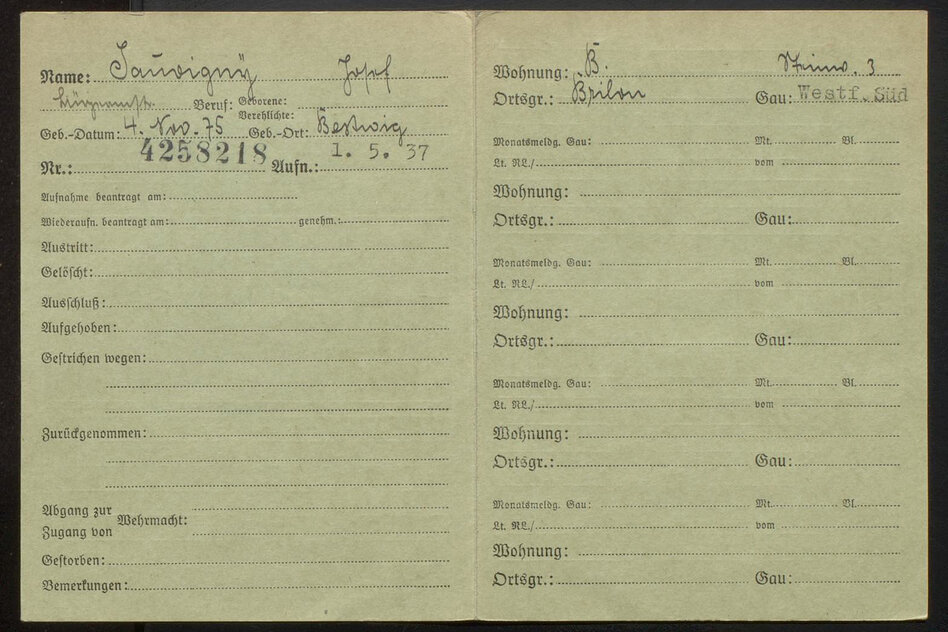 Name: Sauvigny Josef
Beruf: Geborene: Verehelichte:
Geb.-Datum: 4. Nov. 75 Geb.-Ort: Bestwig
Nr.: 4258218 Aufn.: 1. 5. 37
Aufnahme beantragt am:
Wiederaufn. beantragt am: genehm.:
Austritt:
Gelöscht:
Ausschluß:
Aufgehoben:
Gestrichen wegen:
Zurückgenommen:
Abgang zur
Zugang von Wehrmacht:
Gestorben:
Bemerkungen:
Wohnung: B. 3
Ortsgr.: Brilon Gau: Westf. Süd
Monatsmeldg. Gau: Mt. Bl.
Lt. RL./ vom
Wohnung:
Ortsgr.: Gau:
Monatsmeldg. Gau: Mt. Bl.
Lt. RL./ vom
Wohnung:
Ortsgr.: Gau:
Monatsmeldg. Gau: Mt. Bl.
Lt. RL./ vom
Wohnung:
Ortsgr.: Gau:
Monatsmeldg. Gau: Mt. Bl.
Lt. RL./ vom
Wohnung:
Ortsgr.: Gau: